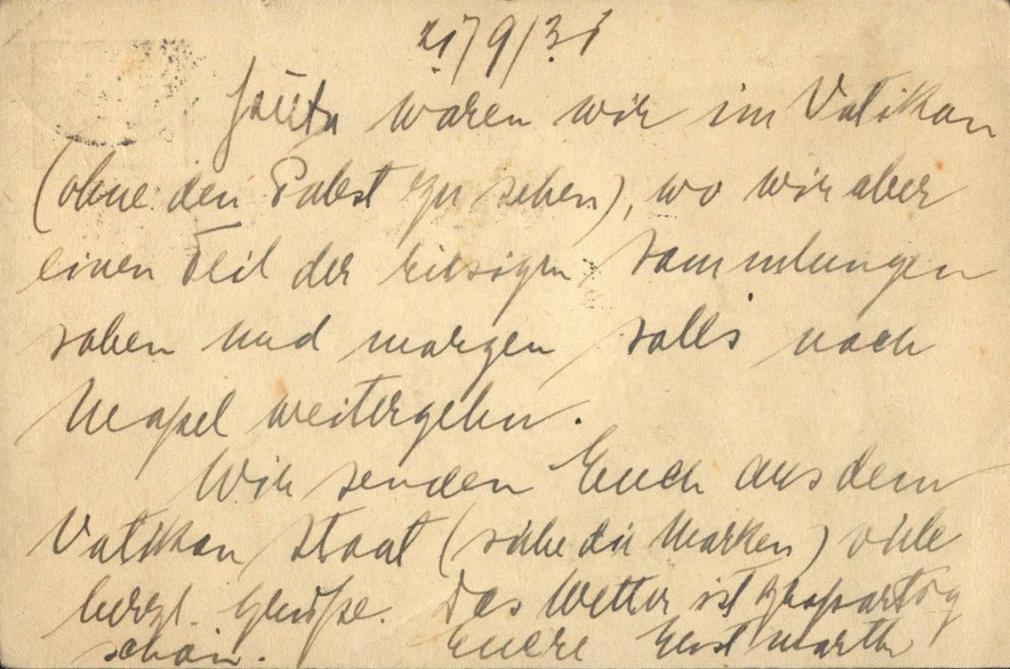 21/9/31
Heute waren wir im Vatikan
(ohne den Pabst zu sehen), wo wir aber
einen Teil der riesigen Sammlungen
sahen und morgen solls nach
Neapel weitergehen.
Wir senden Euch aus dem
Vatikan Staat (siehe die Marken) viele
herzl. Grüße. Das Wetter ist großartig
schön. Euere Ernst Martha